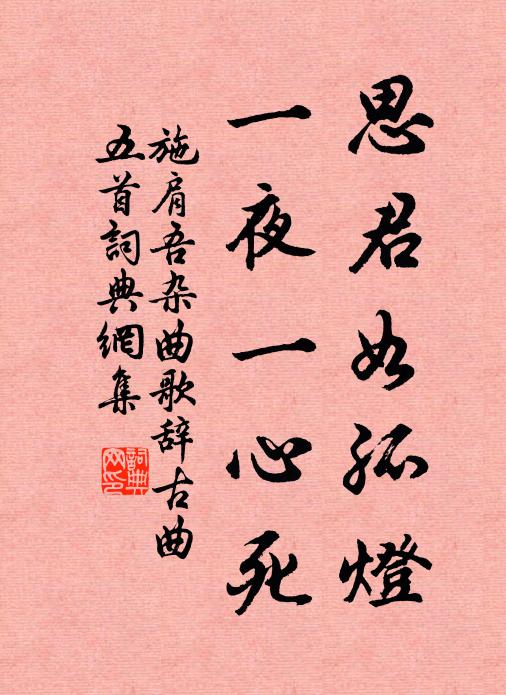 思君如孤燈
一夜一心死
施肩吾杂曲歌辞古曲
五首詞典網集
詞典
网印